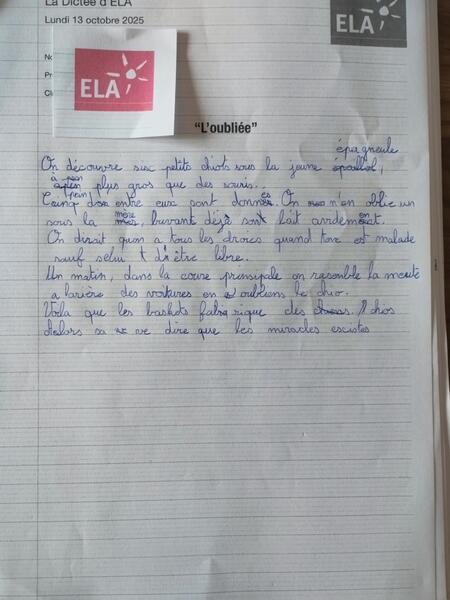 La Dictée d'ELA
Lundi 13 octobre 2025
ELA
ELA
"L'oubliée"
épagneule
On découvre six petits chiots sous la jeune
à peine plus gros que des souris.
Cinq d'entre eux sont donnés. On n'en oblie un
sous la mère, buvant déjà son lait ardemment.
On dirait quon a tous les droies quand ton est malade
sauf selui d'être libre.
Un matin, dans la coure prinsipale on resemble la meute
a larière des voitures en oubliens le chio.
Voila que les baskets fabrique des chios
alors sa ve dire que les miracles escistes